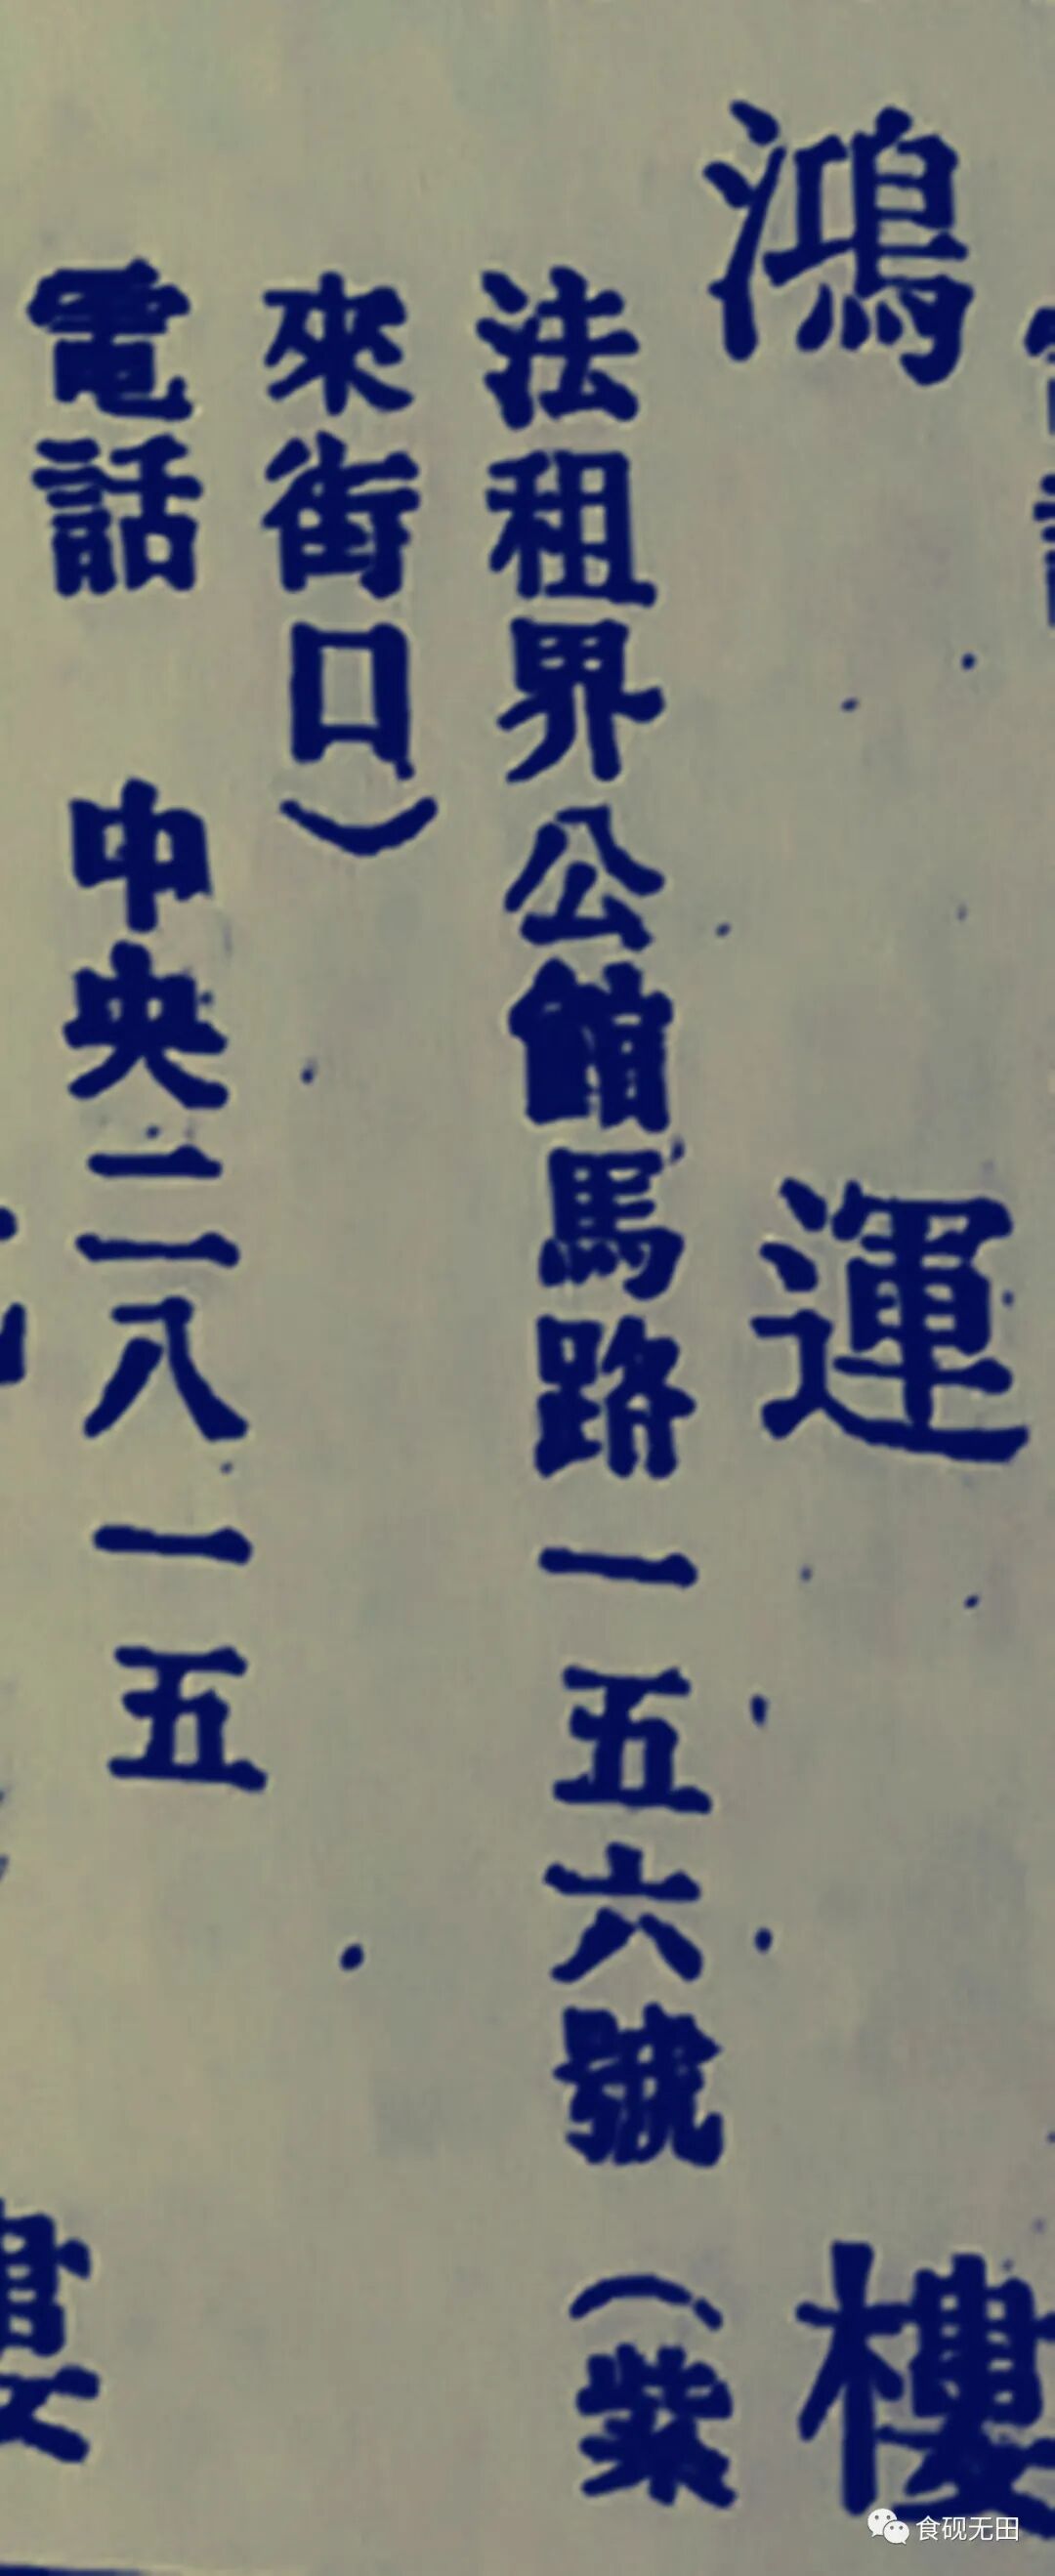 鴻運樓
法租界公館馬路一五六號（紫
來街口）
電話　中央二八一五
食砚无田